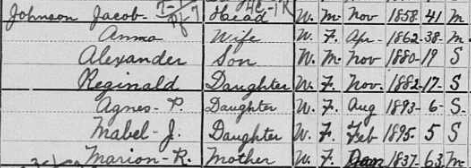 Johnson Jacob Head W. M. Nov 1858 41 M
Anna Wife W. F. Apr 1862 38 M
Alexander Son W. M. Nov 1880 19 S
Reginald Daughter W. F. Nov. 1882 17 S
Agnes P. Daughter W. F. Aug 1893 6 S
Mabel J. Daughter W. F. Feb 1895 5 S
Marion R. Mother W. F. 1837 63 M